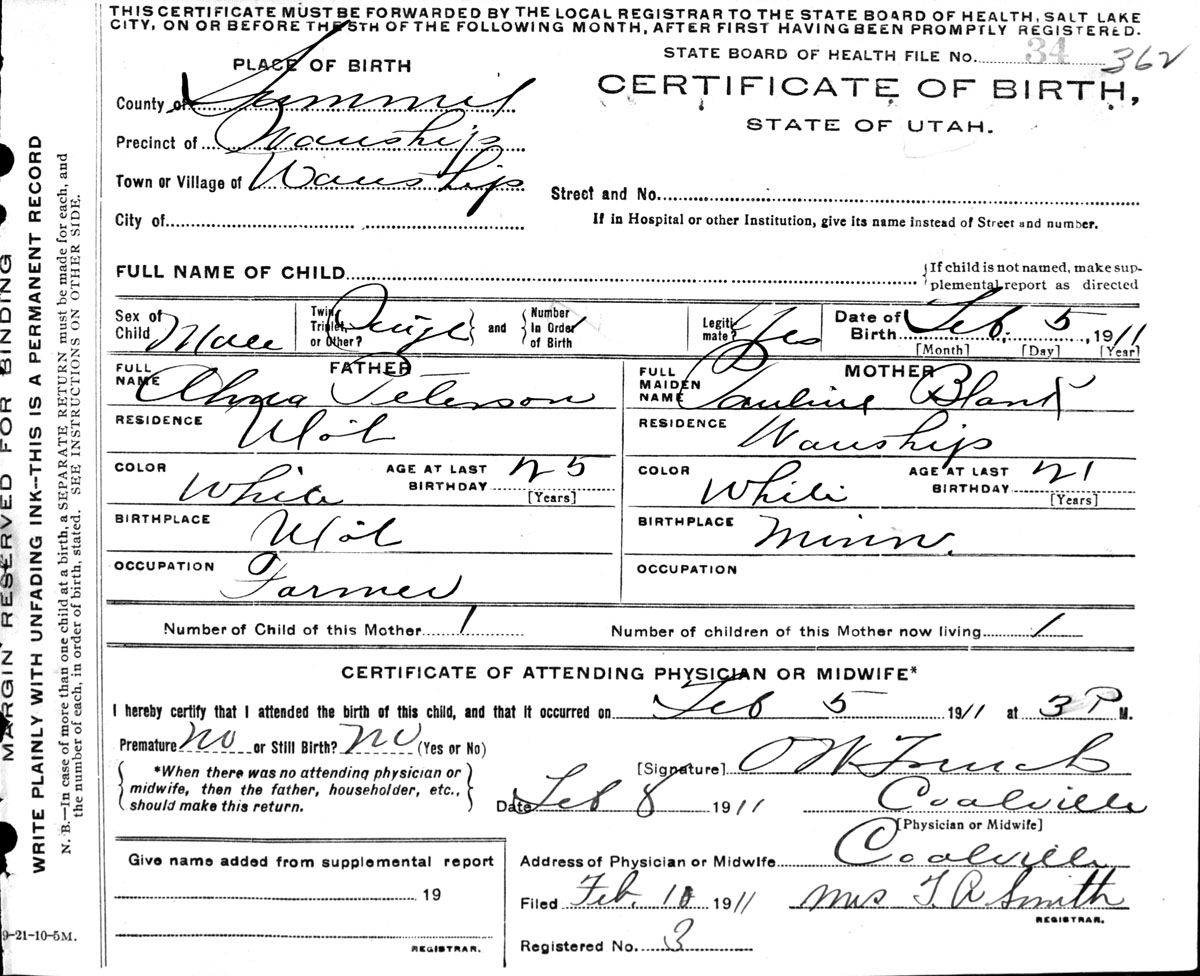 THIS CERTIFICATE MUST BE FORWARDED BY THE LOCAL REGISTRAR TO THE STATE BOARD OF HEALTH, SALT LAKE
CITY, ON OR BEFORE THE 5TH OF THE FOLLOWING MONTH, AFTER FIRST HAVING BEEN PROMPTLY REGISTERED.
STATE BOARD OF HEALTH FILE No. 34 362
PLACE OF BIRTH
CERTIFICATE OF BIRTH,
STATE OF UTAH.
County of Summit
Precinct of Wanship
Town or Village of Wanship
Street and No.
City of
If in Hospital or other Institution, give its name instead of Street and number.
FULL NAME OF CHILD
If child is not named, make supplemental report as directed
Sex of Child Male
Twin, Triplet, or Other? Single and Number In Order of Birth 1
Legitimate? Yes
Date of Birth Feb. 5, 1911
[Month] [Day] [Year]
FATHER
MOTHER
FULL NAME Alma Peterson
FULL MAIDEN NAME Pauline Blank
RESIDENCE Utah
RESIDENCE Wanship
COLOR White AGE AT LAST BIRTHDAY 25 [Years]
COLOR White AGE AT LAST BIRTHDAY 21 [Years]
BIRTHPLACE Utah
BIRTHPLACE Minn.
OCCUPATION Farmer
OCCUPATION
Number of Child of this Mother 1
Number of children of this Mother now living 1
CERTIFICATE OF ATTENDING PHYSICIAN OR MIDWIFE*
I hereby certify that I attended the birth of this child, and that it occurred on Feb 5 1911 at 3 P M.
Premature No or Still Birth? No (Yes or No)
*When there was no attending physician or
midwife, then the father, householder, etc.,
should make this return.
[Signature] O W French
Date Feb 8 1911 Coalville
[Physician or Midwife]
Address of Physician or Midwife Coalville
Give name added from supplemental report
19
REGISTRAR.
Filed Feb. 10 1911 Mrs T. A Smith
REGISTRAR.
Registered No. 3
9-21-10-5M.
MARGIN RESERVED FOR BINDING
WRITE PLAINLY WITH UNFADING INK--THIS IS A PERMANENT RECORD
N. B.—In case of more than one child at a birth, a SEPARATE RETURN must be made for each, and
the number of each, in order of birth, stated. SEE INSTRUCTIONS ON OTHER SIDE.